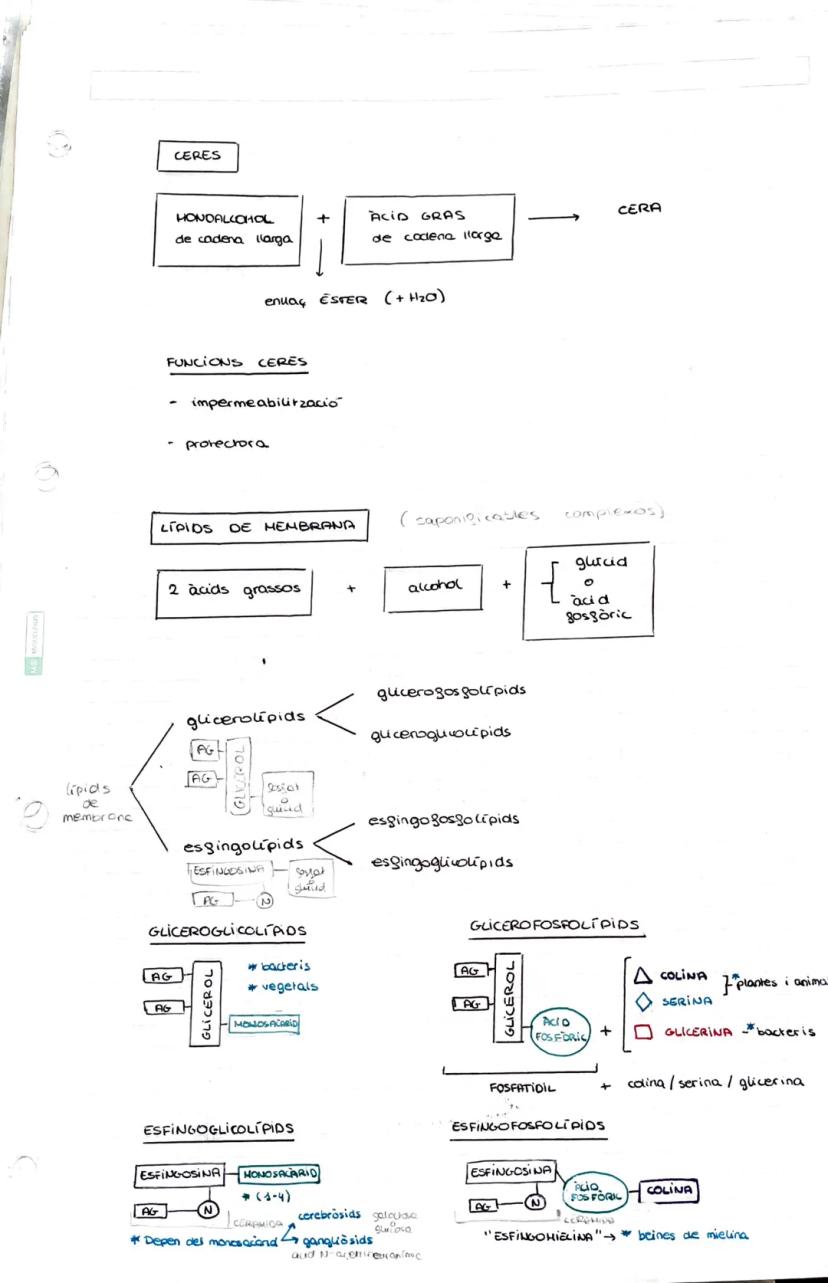 CERES
MONOALCOHOL + ÀCID GRAS → CERA
de cadena llarga de cadena llarga
enllaç ÈSTER (+ H2O)
FUNCIONS CERES
- impermeabilització
- protectora
LÍPIDS DE MEMBRANA (saponificables complexos)
2 àcids grassos + alcohol + glúcid
o
àcid
fosfòric
glicerolípids
glicerofosfolípids
gliceroglicolípids
AG
AG
GLICEROL
fosfat
o
glúcid
lípids
de
membrana
esfingolípids
esfingofosfolípids
esfingoglicolípids
ESFINGOSINA
fosfat
o
glúcid
AG
N
GLICEROGLICOLÍPIDS
AG
AG
GLICEROL
MONOSACÀRID
* bacteris
* vegetals
GLICEROFOSFOLÍPIDS
AG
AG
GLICEROL
ÀCID
FOSFÒRIC
+
COLINA
SERINA
* plantes i anima
GLICERINA - * bacteris
FOSFATIDIL + colina / serina / glicerina
ESFINGOGLICOLÍPIDS
ESFINGOSINA
MONOSACÀRID
* (1-4)
AG
N
CERAMIDA
* Depen del monosacàrid
cerebròsids galactosa
glucosa
gangliòsids
ESFINGOFOSFOLÍPIDS
ESFINGOSINA
ÀCID
FOSFÒRIC
COLINA
AG
N
CERAMIDA
"ESFINGOMIELINA" → * beines de mielina
MIQUELRIUS